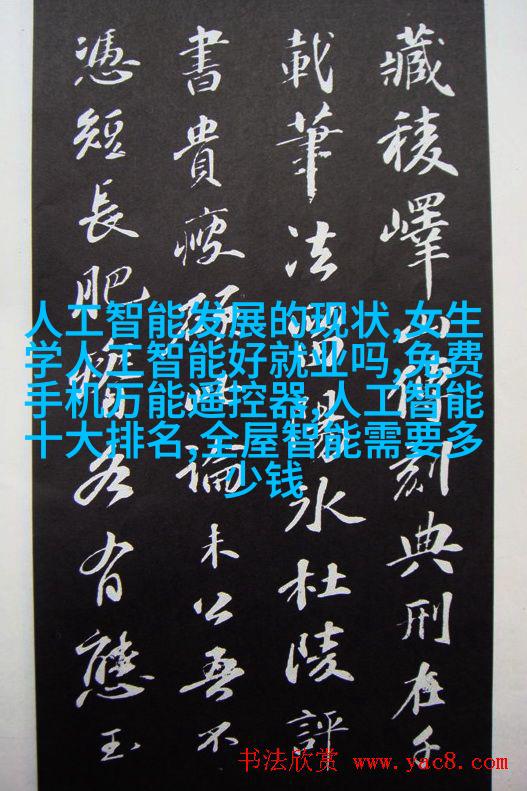 藏稜嶧山傳刻典刑在千
載筆法留陽冰杜陵評
書貴瘦硬此論未公吾不
憑短長肥瘠各有態玉
人工智能发展的现状,女生
学人工智能好就业吗,免费
手机万能遥控器,人工智能
十大排名,全屋智能需要多
少钱
书法欣赏 www.yac8.com